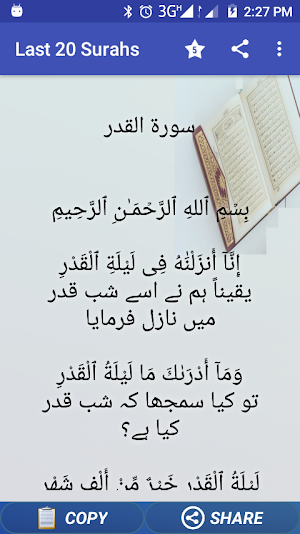 3G H 2:27 PM
Last 20 Surahs 5
سورة القدر
بِسْمِ ٱللهِ ٱلرَّحْمَـٰنِ ٱلرَّحِيمِ
إِنَّآ أَنزَلْنَٰهُ فِى لَيْلَةِ ٱلْقَدْرِ
یقیناً ہم نے اسے شب قدر
میں نازل فرمایا
وَمَآ أَدْرَىٰكَ مَا لَيْلَةُ ٱلْقَدْرِ
تو کیا سمجھا کہ شب قدر
کیا ہے؟
لَيْلَةُ ٱلْقَدْرِ خَيْرٌ مِّنْ أَلْفِ شَهْرٍ
COPY SHARE